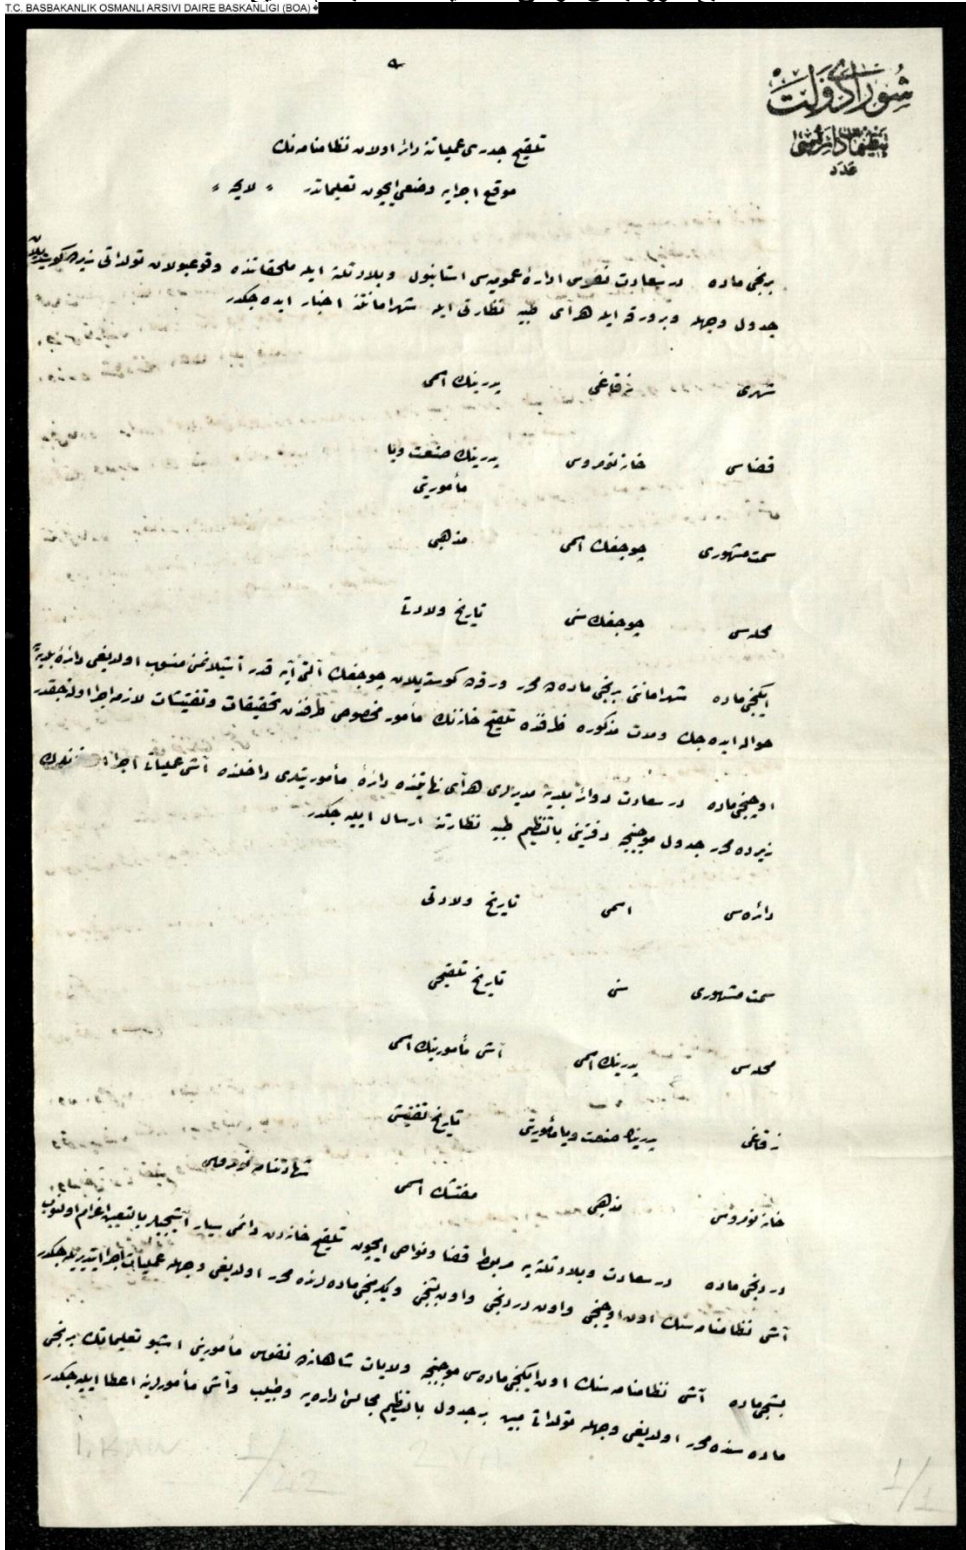 T.C. BASBAKANLIK OSMANLI ARSIVI DAIRE BASKANLIGI (BOA)
شوراى دولت
تنظيمات دائره سى
عدد
تلقيح جدرى عملياتنه دائر اولان نظامنامه نك
موقع اجرايه وضعى ايچون تعليماتدر « لايحه »
برنجى ماده در سعادت نفوس اداره عموميه سى استانبول وبلاد ثلثه ايله ملحقاتنده وقوعبولان تولداتى زيرده كوستريلان
جدول وجهله وبر ورقه ايله هر آى طبيه نظارتى ايله شهر امانتنه اخبار ايده جكدر
شهرى زقاغى پدرينك اسمى
قضاسى خانه نومروسى پدرينك صنعت ويا
مأموريتى
سمت مشهورى چوجغك اسمى مذهبى
محله سى چوجغك سنى تاريخ ولادتى
ايكنجى ماده شهر امانتى برنجى ماده ده محرر ورقه ده كوستريلان چوجغك التى آيه قدر آشيلانمسنى منسوب اولديغى دائره بلديه يه
حواله ايده جك ومدت مذكوره ظرفنده تلقيح خانه نك مأمور مخصوصى طرفندن تحقيقات وتفتيشات لازمه اجرا اولنه جقدر
اوچنجى ماده در سعادت دوائر بلديه مديرلرى هر آى نهايتنده دائره مأموريتلرى داخلنده آشى عملياتى اجرا
زيرده محرر جدول موجبنجه دفترينى بالتنظيم طبيه نظارتنه ارسال ايليه جكدر
دائره سى اسمى تاريخ ولادتى
سمت مشهورى سنى تاريخ تلقيحى
محله سى پدرينك اسمى آشى مأمورينك اسمى
زقاغى پدرينك صنعت ويا مأموريتى تاريخ تفتيشى
خانه نومروسى مذهبى مفتشك اسمى شهادتنامه نومروسى
دردنجى ماده در سعادت وبلاد ثلثه يه مربوط قضا ونواحى ايچون تلقيح خانه دن دائمى سيار آشيجيلر بالتعيين اعزام اولنوب
آشى نظامنامه سنك اون اوچنجى واون دردنجى واون بشنجى ويكرمنجى ماده لرنده محرر اولديغى وجهله عمليات اجرا ايتديريله جكدر
بشنجى ماده آشى نظامنامه سنك اون ايكنجى ماده سى موجبنجه ولايات شاهانه ده نفوس مأمورينى اشبو تعليماتك برنجى
ماده سنده محرر اولديغى وجهله تولداتى مبين بر جدول بالتنظيم مجالس اداره يه وطبيب وآشى مأمورلرينه اعطا ايليه جكدر
1/1